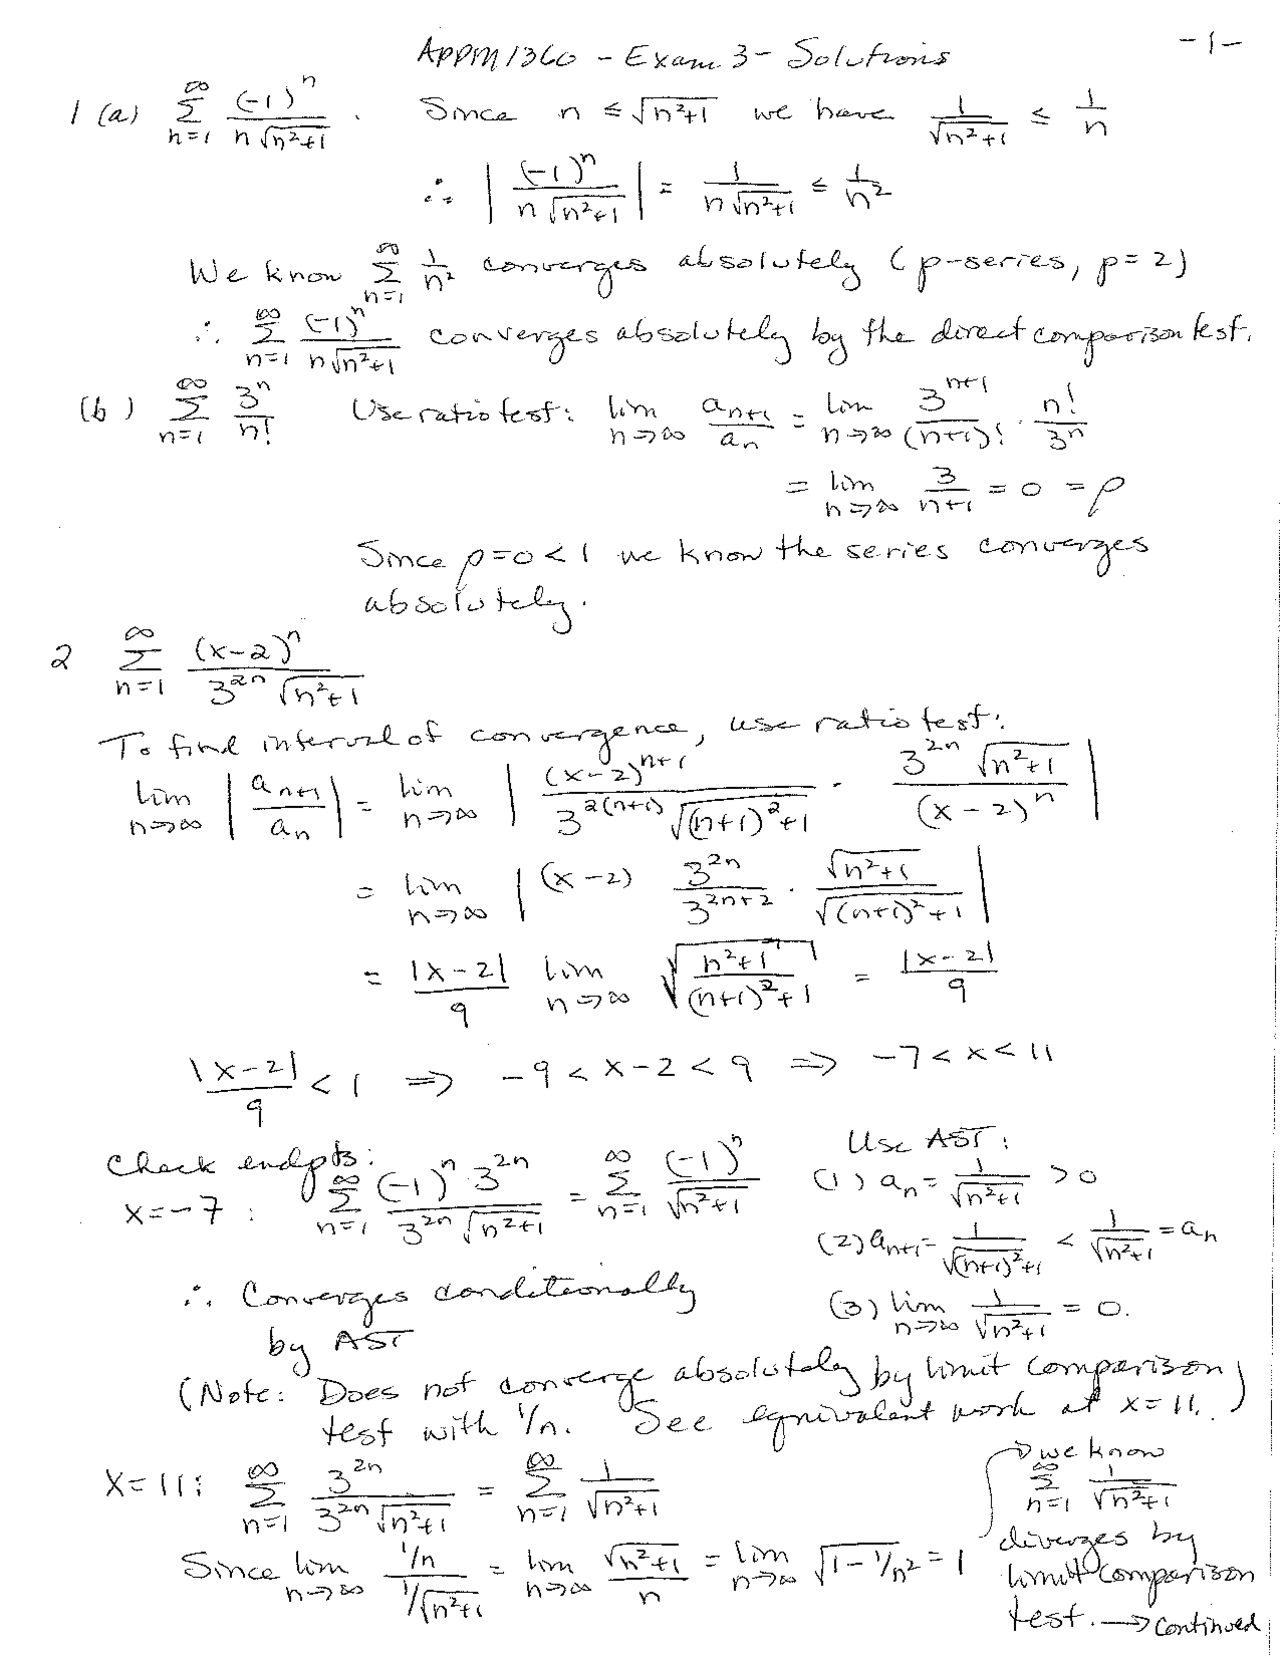 APPM 1360 - Exam 3 - Solutions -1-
1 (a) ∑_{n=1}^{∞} (-1)^n / (n√(n²+1)) . Since n ≤ √(n²+1) we have 1/√(n²+1) ≤ 1/n
∴ |(-1)^n / (n√(n²+1))| = 1/(n√(n²+1)) ≤ 1/n²
We know ∑_{n=1}^{∞} 1/n² converges absolutely (p-series, p=2)
∴ ∑_{n=1}^{∞} (-1)^n / (n√(n²+1)) converges absolutely by the direct comparison test.
(b) ∑_{n=1}^{∞} 3^n / n! Use ratio test: lim_{n→∞} a_{n+1}/a_n = lim_{n→∞} 3^{n+1}/(n+1)! · n!/3^n
= lim_{n→∞} 3/(n+1) = 0 = ρ
Since ρ=0<1 we know the series converges
absolutely.
2 ∑_{n=1}^{∞} (x-2)^n / (3^{2n} √(n²+1))
To find interval of convergence, use ratio test:
lim_{n→∞} |a_{n+1}/a_n| = lim_{n→∞} | (x-2)^{n+1} / (3^{2(n+1)} √((n+1)²+1)) · 3^{2n} √(n²+1) / (x-2)^n |
= lim_{n→∞} | (x-2) 3^{2n}/3^{2n+2} · √(n²+1)/√((n+1)²+1) |
= |x-2|/9 lim_{n→∞} √((n²+1)/((n+1)²+1)) = |x-2|/9
|x-2|/9 < 1 ⇒ -9 < x-2 < 9 ⇒ -7 < x < 11
Check endpts: Use AST:
x=-7: ∑_{n=1}^{∞} (-1)^n 3^{2n} / (3^{2n} √(n²+1)) = ∑_{n=1}^{∞} (-1)^n / √(n²+1) (1) a_n = 1/√(n²+1) > 0
(2) a_{n+1} = 1/√((n+1)²+1) < 1/√(n²+1) = a_n
∴ Converges conditionally (3) lim_{n→∞} 1/√(n²+1) = 0.
by AST
(Note: Does not converge absolutely by limit comparison
test with 1/n. See equivalent work at x=11.)
x=11: ∑_{n=1}^{∞} 3^{2n} / (3^{2n} √(n²+1)) = ∑_{n=1}^{∞} 1/√(n²+1)
Since lim_{n→∞} (1/n) / (1/√(n²+1)) = lim_{n→∞} √(n²+1)/n = lim_{n→∞} √(1-1/n²) = 1
→ we know
∑_{n=1}^{∞} 1/√(n²+1)
diverges by
limit comparison
test. → continued